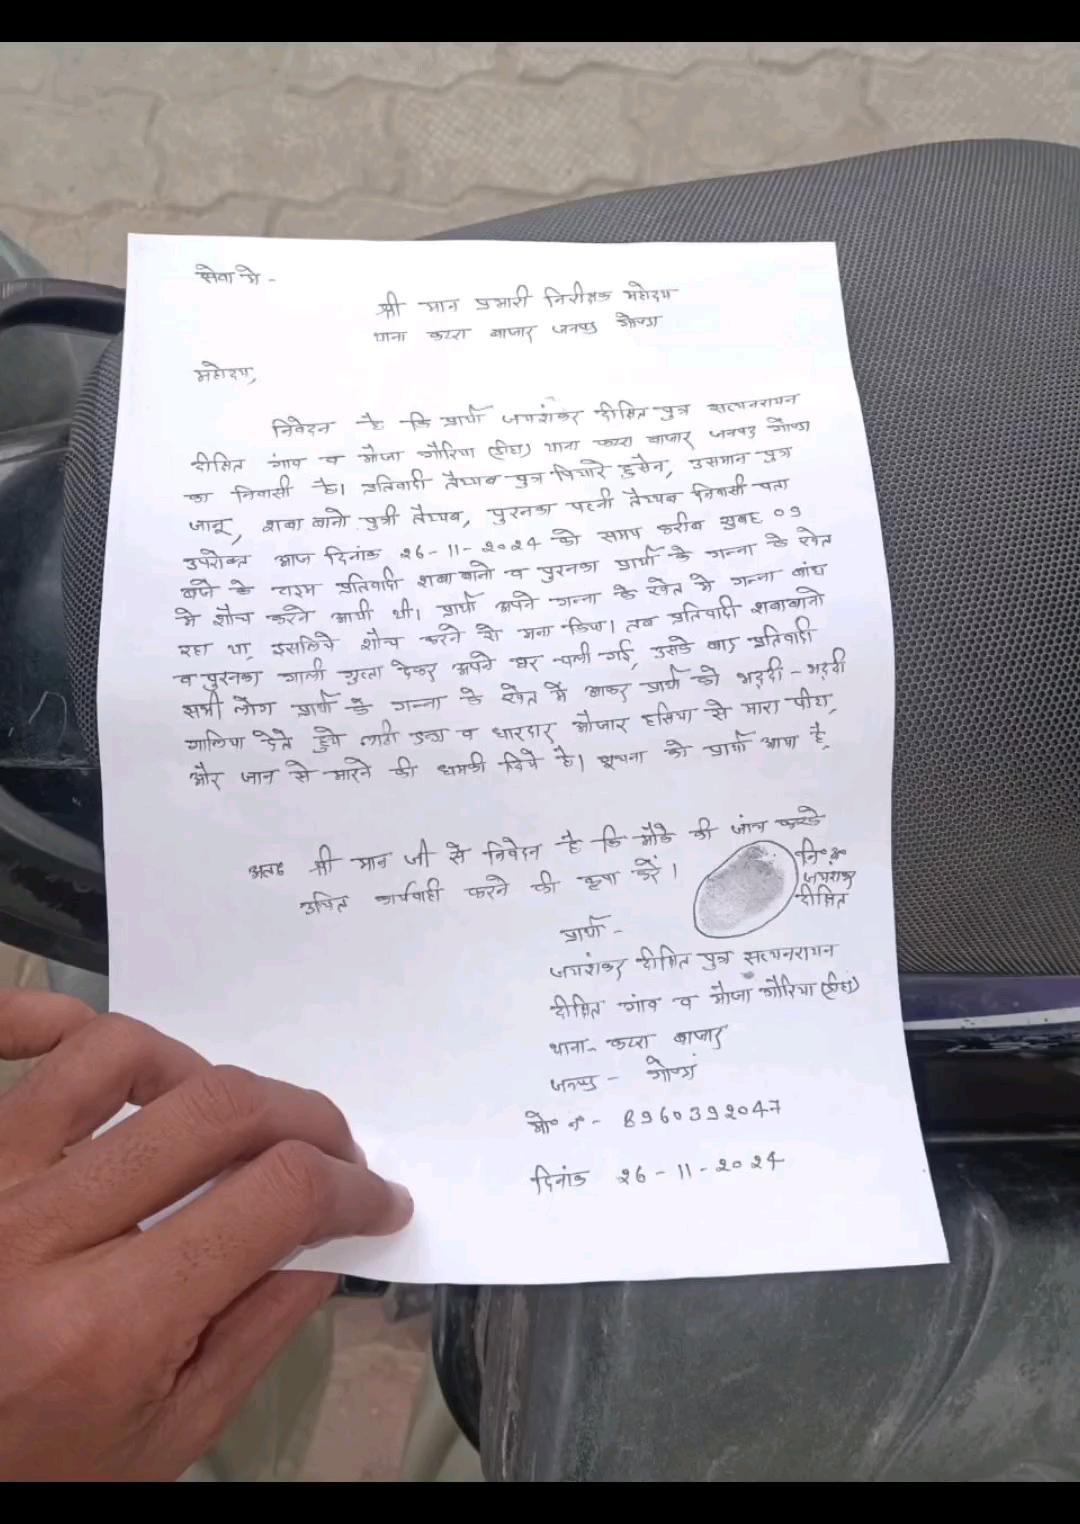 सेवा मे -
श्री मान प्रभारी निरीक्षक महोदय
थाना कटरा बाजार जनपद गोण्डा
महोदय,
निवेदन है कि प्रार्थी जयशंकर दीक्षित पुत्र सत्यनरायन
दीक्षित गांव व मौजा गौरिया (डीहा) थाना कटरा बाजार जनपद गोण्डा
का निवासी है। प्रतिवादी तैय्यब पुत्र पियारे हुसेन, उसमान पुत्र
जानू, शबा बानो पुत्री तैय्यब, पुरनका पत्नी तैय्यब निवासी पता
उपरोक्त आज दिनांक 26-11-2024 को समय करीब सुबह 09
बजे के टाइम प्रतिवादी शबा बानो व पुरनका प्रार्थी के गन्ना के खेत
मे शौच करने आयी थी। प्रार्थी अपने गन्ना के खेत मे गन्ना बांध
रहा था, इसलिये शौच करने से मना किया। तब प्रतिवादी शबाबानो
व पुरनका गाली गुप्ता देकर अपने घर चली गई, उसके बाद प्रतिवादी
सभी लोग प्रार्थी के गन्ना के खेत मे आकर प्रार्थी को भद्दी - भद्दी
गालिया देते हुये लाठी डन्डा व धारदार औजार हसिया से मारा पीटा,
और जान से मारने की धमकी दिये है। सूचना को प्रार्थी आया है,
अतः श्री मान जी से निवेदन है कि मौके की जांच करके
उचित कार्यवाही करने की कृपा करें।
नि० अ०
जयशंकर
दीक्षित
प्रार्थी -
जयशंकर दीक्षित पुत्र सत्यनरायन
दीक्षित गांव व मौजा गौरिया (डीहा)
थाना - कटरा बाजार
जनपद - गोण्डा
मो० नं० - 8960392047
दिनांक 26-11-2024